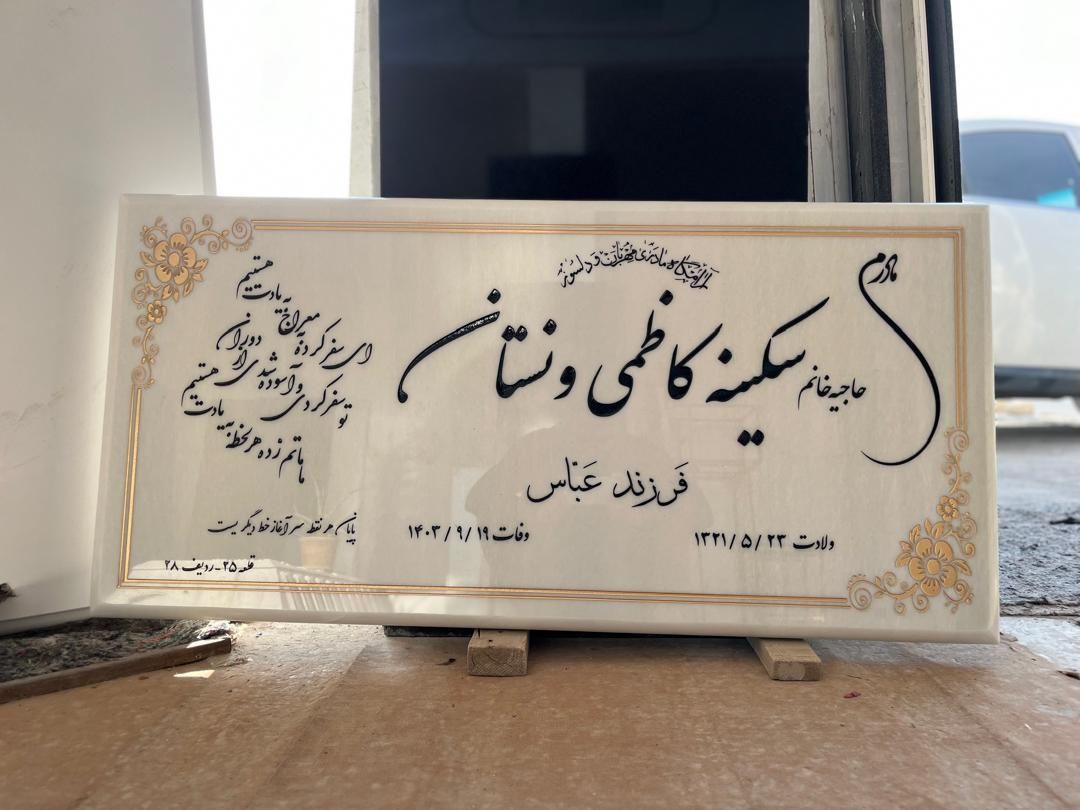 آرامگاه مادری مهربان و دلسوز
مادرم
حاجیه خانم سکینه کاظمی ونستان
فرزند عباس
ولادت ۱۳۲۱/۵/۲۳
وفات ۱۴۰۳/۹/۱۹
ای سفر کرده به معراج به یادت هستیم
تو سفر کردی و آسوده شدی از دوران
ما تم زده هر لحظه به یادت هستیم
پایان هر نقطه سرآغاز خط دیگریست
قطعه ۲۵-ردیف ۲۸